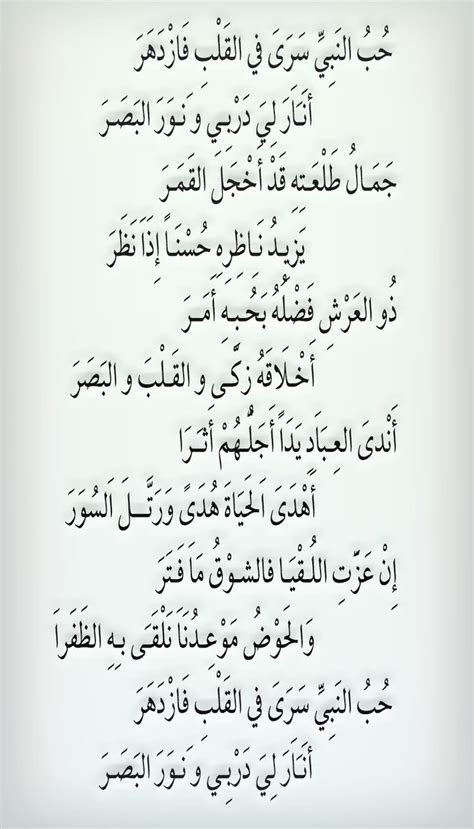 حُبُ النَبِيِّ سَرَى فِي القَلْبِ فَازْدَهَرَ
أَنَارَ لِيَ دَرْبِي وَ نَوَرَ البَصَرَ
جَمَالُ طَلْعَتِهِ قَدْ أَخْجَلَ القَمَرَ
يَزِيدُ نَاظِرِهِ حُسْنَاً إِذَا نَظَرَ
ذُو العَرْشِ فَضْلُهُ بَحُبِهِ أَمَرَ
أَخْلَاقَهُ زَكَّى وِ القَلْبَ وِ البَصَرَ
أَنْدىَ العِبَادِ يَدَاً أَجَلُّهُمْ أَثَرَا
أَهْدَى اَلحَيَاةَ هُدَىً وَرَتَّلَ السُوَرَ
إِنْ عَزَّتِ اللُقْيَا فالشوْقُ مَا فَتَرَ
وَالحَوْضُ مَوْعِدُنَا نَلْقَى بِهِ الظَفَرَا
حُبُ النَبِيِّ سَرَى فِي القَلْبِ فَازْدَهَرَ
أَنَارَ لِيَ دَرْبِي وَ نَوَرَ البَصَرَ